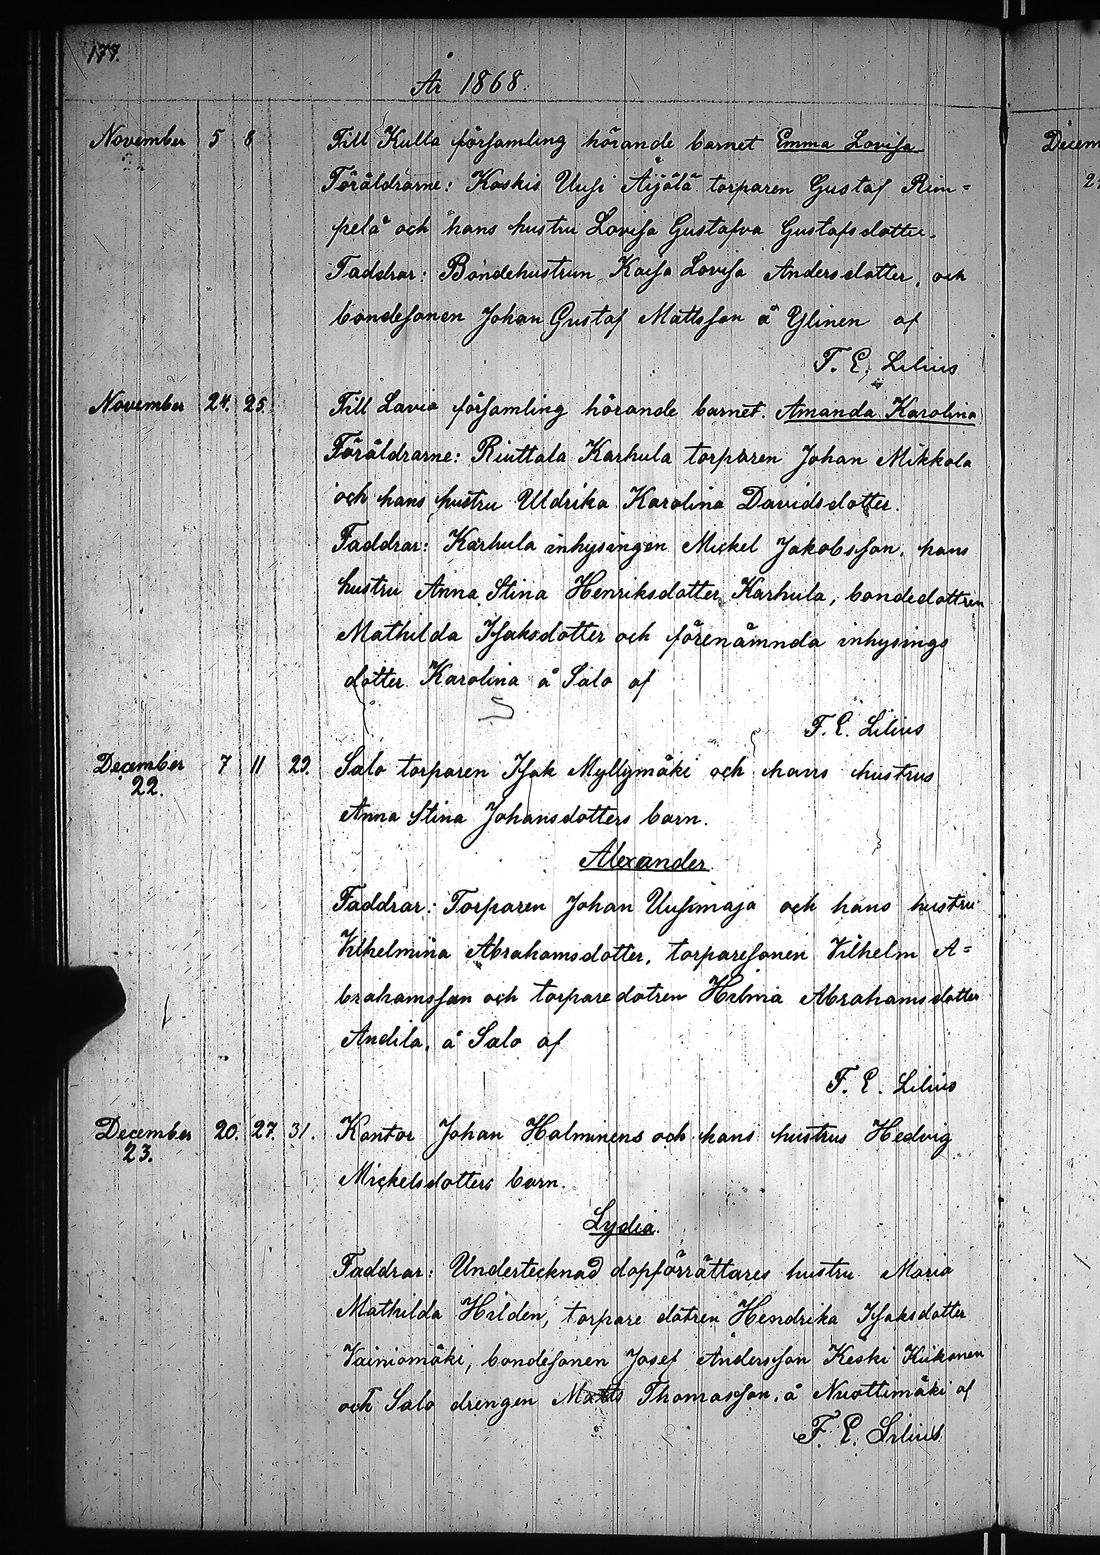 177.
År 1868.
November 5 8 Till Kulla församling hörande barnet Emma Lovisa
Föräldrarne: Koskis Uusi Äijälä torparen Gustaf Rim=
pelä och hans hustru Lovisa Gustafva Gustafsdotter.
Faddrar: Bondehustrun Kaisa Lovisa Andersdotter, och
bondesonen Johan Gustaf Mattsson å Ylinen af
F. E. Lilius
November 24. 25. Till Lavia församling hörande barnet. Amanda Karolina
Föräldrarne: Riuttala Karhula torparen Johan Mikkola
och hans hustru Uldrika Karolina Davidsdotter.
Faddrar: Karhula inhysingen Mickel Jakobsson, hans
hustru Anna Stina Henriksdotter Karhula, bondedottren
Mathilda Isaksdotter och förenämnda inhysings
dotter Karolina å Salo af
F. E. Lilius
December 7 11 29. Salo torparen Isak Myllymäki och hans hustrus
22.
Anna Stina Johansdotters barn.
Alexander
Faddrar: Torparen Johan Uusimaja och hans hustru
Vilhelmina Abrahamsdotter, torparesonen Vilhelm A=
brahamsson och torparedotren Hilma Abrahamsdotter
Andila, å Salo af
F. E. Lilius
December 20. 27. 31. Kantor Johan Halminens och hans hustrus Hedvig
23.
Mickelsdotters barn.
Lydia
Faddrar: Undertecknad dopförrättares hustru Maria
Mathilda Hilden, torpare dotren Hendrika Isaksdotter
Vainiomäki, bondesonen Josef Andersson Keski Kiikonen
och Salo drengen Matts Thomasson, å Nuottimäki af
F. E. Lilius
Decem